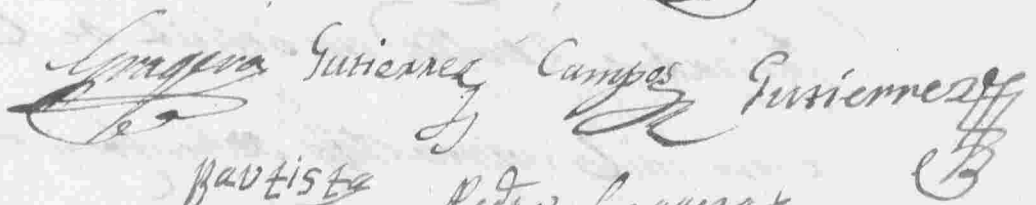 Gragera Gutierrez Campos Gutierrez
Bautista Pedro